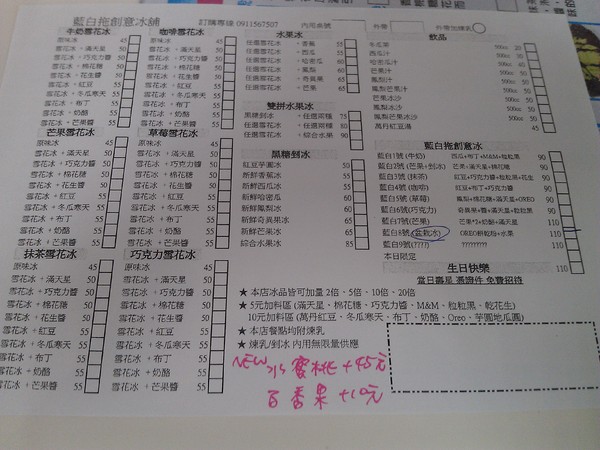 藍白拖創意冰舖 訂購專線 0911567507 內用桌號 外帶 外帶加煉乳
牛奶雪花冰
原味冰 45
雪花冰 + 滿天星 50
雪花冰 + 巧克力醬 50
雪花冰 + 棉花糖 50
雪花冰 + 花生醬 50
雪花冰 + 紅豆 55
雪花冰 + 冬瓜寒天 55
雪花冰 + 布丁 55
雪花冰 + 奶酪 55
雪花冰 + 芒果醬 55
咖啡雪花冰
原味冰 45
雪花冰 + 滿天星
雪花冰 + 巧克力醬
雪花冰 + 棉花糖
雪花冰 + 花生醬
雪花冰 + 紅豆 55
雪花冰 + 冬瓜寒天 55
雪花冰 + 布丁 55
雪花冰 + 奶酪 55
雪花冰 + 芒果醬 55
芒果雪花冰
原味冰 45
雪花冰 + 滿天星
雪花冰 + 巧克力醬
雪花冰 + 棉花糖
雪花冰 + 花生醬
雪花冰 + 紅豆 55
雪花冰 + 冬瓜寒天 55
雪花冰 + 布丁 55
雪花冰 + 奶酪 55
雪花冰 + 芒果醬 55
草莓雪花冰
原味冰 45
雪花冰 + 滿天星
雪花冰 + 巧克力醬
雪花冰 + 棉花糖
雪花冰 + 花生醬
雪花冰 + 紅豆 55
雪花冰 + 冬瓜寒天 55
雪花冰 + 布丁 55
雪花冰 + 奶酪 55
雪花冰 + 芒果醬 55
抹茶雪花冰
原味冰 45
雪花冰 + 滿天星
雪花冰 + 巧克力醬
雪花冰 + 棉花糖
雪花冰 + 花生醬
雪花冰 + 紅豆 55
雪花冰 + 冬瓜寒天 55
雪花冰 + 布丁 55
雪花冰 + 奶酪 55
雪花冰 + 芒果醬 55
巧克力雪花冰
原味冰 45
雪花冰 + 滿天星
雪花冰 + 巧克力醬
雪花冰 + 棉花糖
雪花冰 + 花生醬
雪花冰 + 紅豆 55
雪花冰 + 冬瓜寒天 55
雪花冰 + 布丁 55
雪花冰 + 奶酪 55
雪花冰 + 芒果醬 55
水果冰
任選雪花冰 + 香蕉 55
任選雪花冰 + 西瓜 55
任選雪花冰 + 哈密瓜
任選雪花冰 + 鳳梨
任選雪花冰 + 奇異果
任選雪花冰 + 芒果
雙拼水果冰
黑糖剉冰 + 任選兩種 75
任選雪花冰 + 任選兩種 80
任選雪花冰 + 綜合水果 90
黑糖剉冰
紅豆芋圓冰 50
新鮮香蕉冰 55
新鮮西瓜冰 55
新鮮哈密瓜冰
新鮮鳳梨冰
新鮮奇異果冰 65
新鮮芒果冰 65
綜合水果冰 85
飲品
冬瓜茶 500cc 20
西瓜汁 500cc
哈密瓜汁 500cc
芒果汁 500cc
鳳梨汁 500cc
鳳梨芒果汁 500cc
芒果冰沙 500cc
鳳梨冰沙 500cc
鳳梨芒果冰沙 500cc
萬丹紅豆湯 45
藍白拖創意冰
藍白1號 (牛奶) 西瓜+布丁+M&M+粒粒黑 90
藍白2號 (芒果+剉冰) 芒果+滿天星+棉花糖 90
藍白3號 (抹茶) 紅豆+巧克力醬+粒粒黑+花生 90
藍白4號 (咖啡) 紅豆+布丁+巧克力醬 90
藍白5號 (草莓) 鳳梨+棉花糖+滿天星+OREO 90
藍白6號 (巧克力) 奇異果+醬+滿天星+粒粒黑 90
藍白7號 (芒果) 芒果*2+奶酪+滿天星 110
藍白8號 (盆栽冰) OREO餅乾粉+水果 110
藍白9號 (?????) ????????? 110
本日限定 110
生日快樂
當日壽星 憑證件 免費招待
★ 本店冰品皆可加量 2倍、5倍、10倍、20倍
★ 5元加料區 (滿天星、棉花糖、巧克力醬、M&M、粒粒黑、乾花生)
10元加料區 (萬丹紅豆、冬瓜寒天、布丁、奶酪、Oreo、芋圓地瓜圓)
★ 本店餐點均附煉乳
★ 煉乳/剉冰 內用無限量供應
NEW 水蜜桃 +45元
百香果 +10元